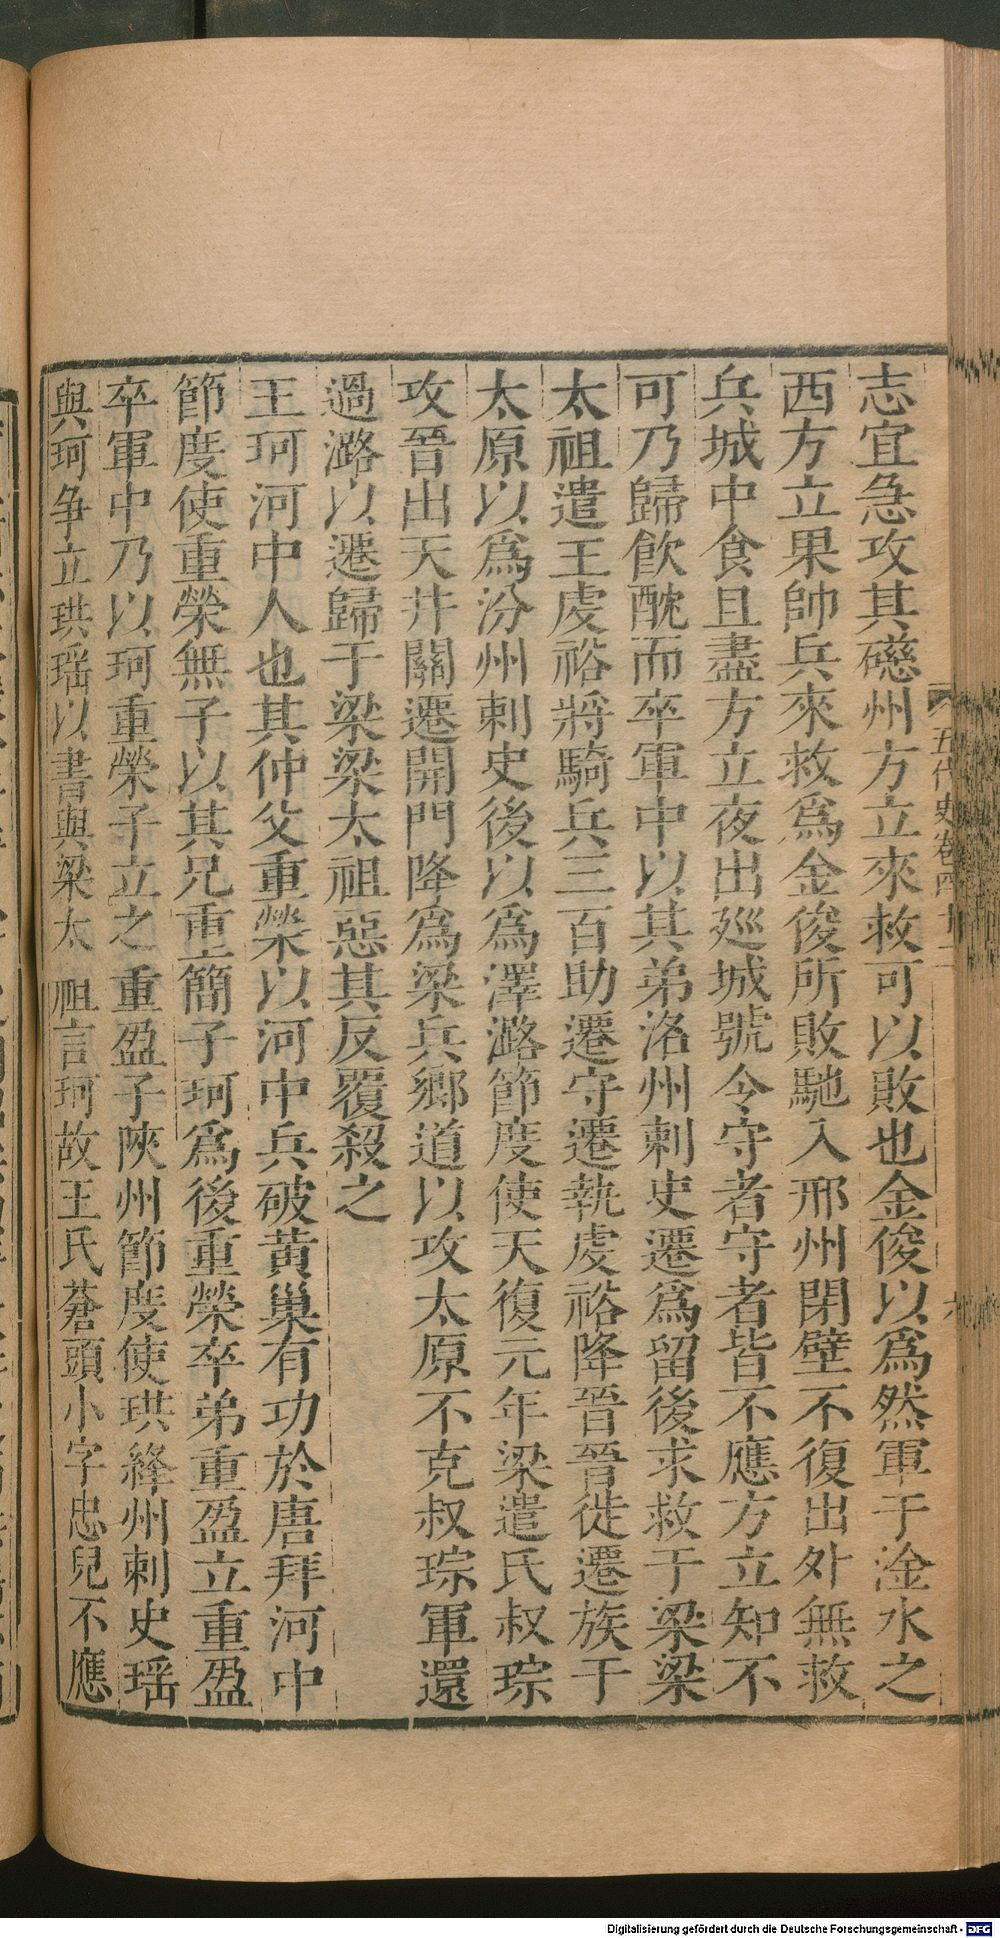 志宜急攻其磁州方立來救可以敗也金俊以爲然軍于淦水之
西方立果帥兵來救爲金俊所敗馳入邢州閉壁不復出外無救
兵城中食且盡方立夜出廵城號令守者守者皆不應方立知不
可乃歸飲酖而卒軍中以其弟洛州剌史遷爲留後求救于梁梁
太祖遣王虔裕將騎兵三百助遷守遷執虔裕降晉晉徙遷族于
太原以爲汾州剌史後以爲澤潞節度使天復元年梁遣氏叔琮
攻晉出天井關遷開門降爲梁兵鄉道以攻太原不克叔琮軍還
過潞以遷歸于梁梁太祖惡其反覆殺之
王珂河中人也其仲父重榮以河中兵破黃巢有功於唐拜河中
節度使重榮無子以其兄重簡子珂爲後重榮卒弟重盈立重盈
卒軍中乃以珂重榮子立之重盈子陝州節度使珙絳州剌史瑶
與珂争立珙瑶以書與梁太祖言珂故王氏蒼頭小字忠兒不應
五代史卷四十二
Digitalisierung gefördert durch die Deutsche Forschungsgemeinschaft - DFG